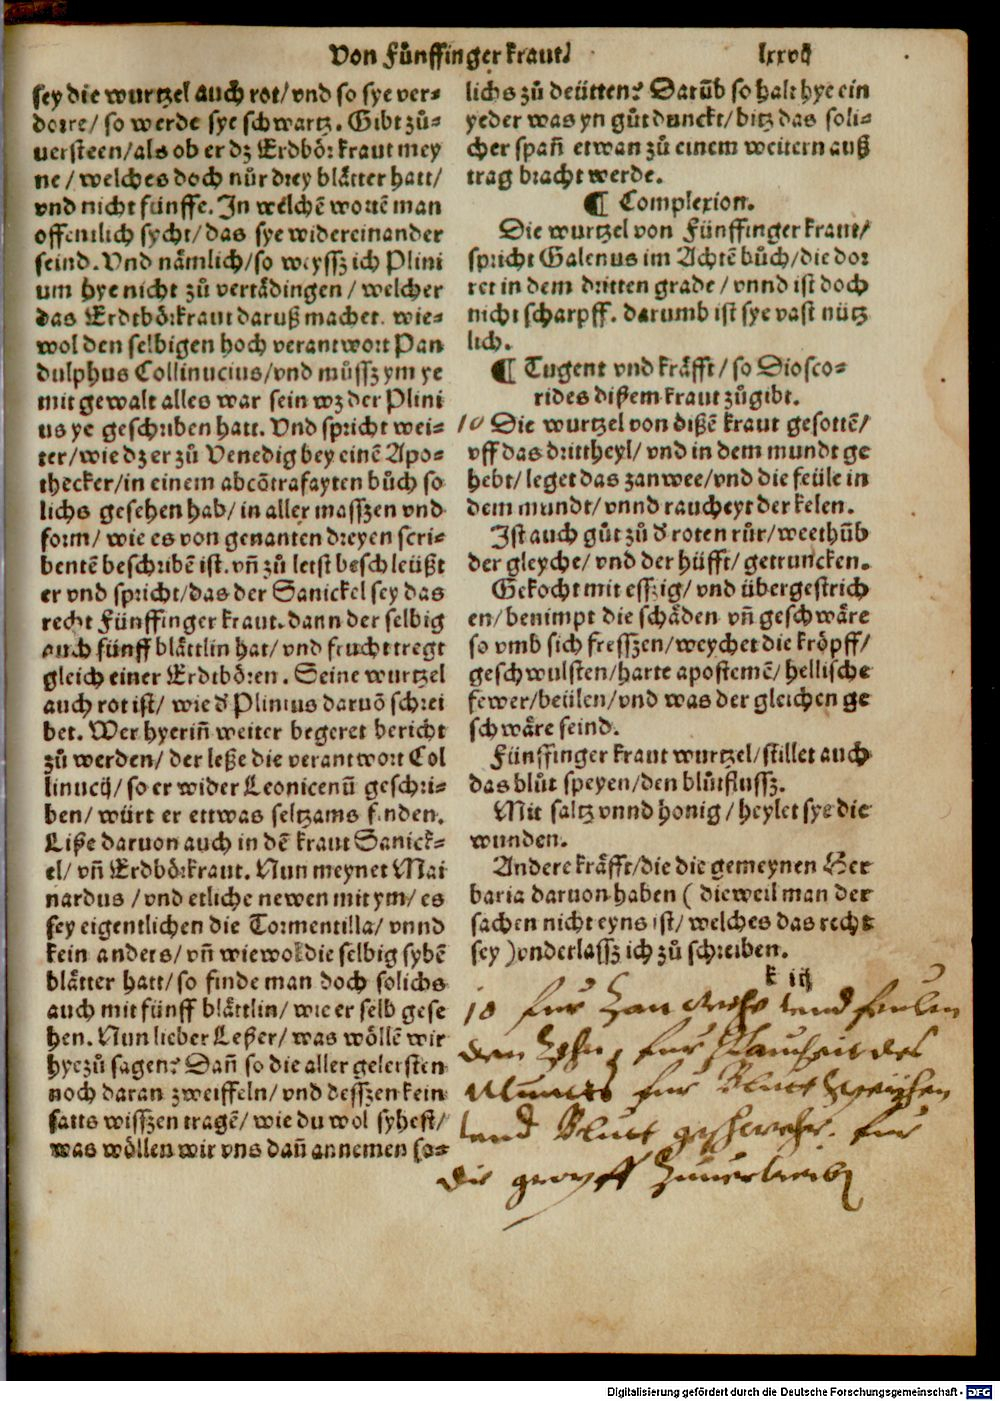 Von Fünffinger kraut.
lxxvij
sey die wurtzel auch rot/ vnd so sye ver⸗
dorre/ so werde sye schwartz. Gibt zů⸗
uersteen/als ob er dz Erdbör kraut mey
ne/ welches doch nůr drey blätter hatt/
vnd nicht fünffe. In welchē wortē man
offentlich sycht/ das sye widereinander
seind. Vnd nämlich/ so weyssz ich Plini
um hye nicht zů vertädingen/ welcher
das Erdtbörkraut daruß machet. wie⸗
wol den selbigen hoch verantwort Pan
dulphus Collinucius/ vnd můssz ym ye
mit gewalt alles war sein wz der Plini
us ye geschriben hatt. Vnd spricht wei⸗
ter/ wie dz er zů Venedig bey einē Apo⸗
thecker/in einem abcōtrafayten bůch so
lichs gesehen hab/ in aller masszen vnd
form/ wie es von genanten dreyen scri⸗
bentē beschribē ist. vñ zů letst beschleüßt
er vnd spricht/ das der Sanickel sey das
recht Fünffinger kraut. dann der selbig
auch fünff blättlin hat/ vnd frucht tregt
gleich einer Erdtbören. Seine wurtzel
auch rot ist/ wie d̕ Plinius daruō schrei
bet. Wer hyeriñ weiter begeret bericht
zů werden/ der leße die verantwort Col
linucij/ so er wider Leonicenū geschri⸗
ben/ würt er ettwas seltzams finden.
Liße daruon auch in dē kraut Sanick⸗
el/ vñ Erdbörkraut. Nun meynet Mai
nardus/ vnd etliche newen mit ym/ es
sey eigentlichen die Tormentilla/ vnnd
kein anders/ vñ wiewol die selbig sybē
blätter hatt/ so finde man doch solichs
auch mit fünff blättlin/ wie er selb gese
hen. Nun lieber Leßer/ was wöllē wir
hyezů sagen? Dañ so die aller gelertsten
noch daran zweiffeln/ vnd desszen kein
satts wisszen tragē/ wie du wol syhest/
was wöllen wir vns dañ annemen so⸗
lichs zů deütten? Darūb so halt hye ein
yeder was yn gůt dunckt/ bitz das soli⸗
cher spañ etwan zů einem weitern auß
trag bracht werde.
¶ Complexion.
Die wurtzel von Fünffinger kraut/
spricht Galenus im Achtē bůch/ die dor
ret in dem dritten grade/ vnnd ist doch
nicht scharpff. darumb ist sye vast nütz
lich.
¶ Tugent vnd kräfft/ so Diosco⸗
rides dißem kraut zůgibt.
10 Die wurtzel von dißē kraut gesottē/
vff das drittheyl/ vnd in dem mundt ge
hebt/ leget das zanwee/ vnd die feüle in
dem mundt/ vnnd raucheyt der kelen.
Ist auch gůt zů d̕ roten růr/ weethūb
der gleyche/ vnd der hüfft/ getruncken.
Gekocht mit esszig/ vnd übergestrich
en/ benimpt die schäden vñ geschwäre
so vmb sich fresszen/ weychet die kröpff/
geschwulsten/ harte apostemē/ hellische
fewer/ beülen/ vnd was der gleichen ge
schwäre seind.
Fünffinger kraut wurtzel/ stillet auch
das blůt speyen/ den blůtflussz.
Mit saltz vnnd honig/ heylet sye die
wunden.
Andere kräfft/ die die gemeynen Her
baria daruon haben ( dieweil man der
sachen nicht eyns ist/ welches das recht
sey ) vnderlassz ich zů schreiben.
k iij
10 für Zan wehe vnd feulen
den Zehn, für Rauheit des
Mundts für Blutt speyhen
vnd Blutt geschwehr. für
die
Digitalisierung gefördert durch die Deutsche Forschungsgemeinschaft - DFG